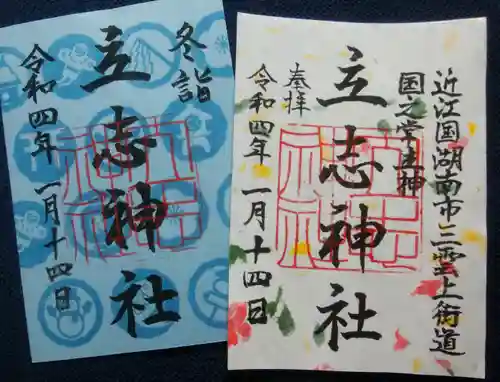 冬詣
立志神社
令和四年 一月十四日
近江国湖南市三雲上街道
国之常立神
奉拝
立志神社
令和四年 一月十四日